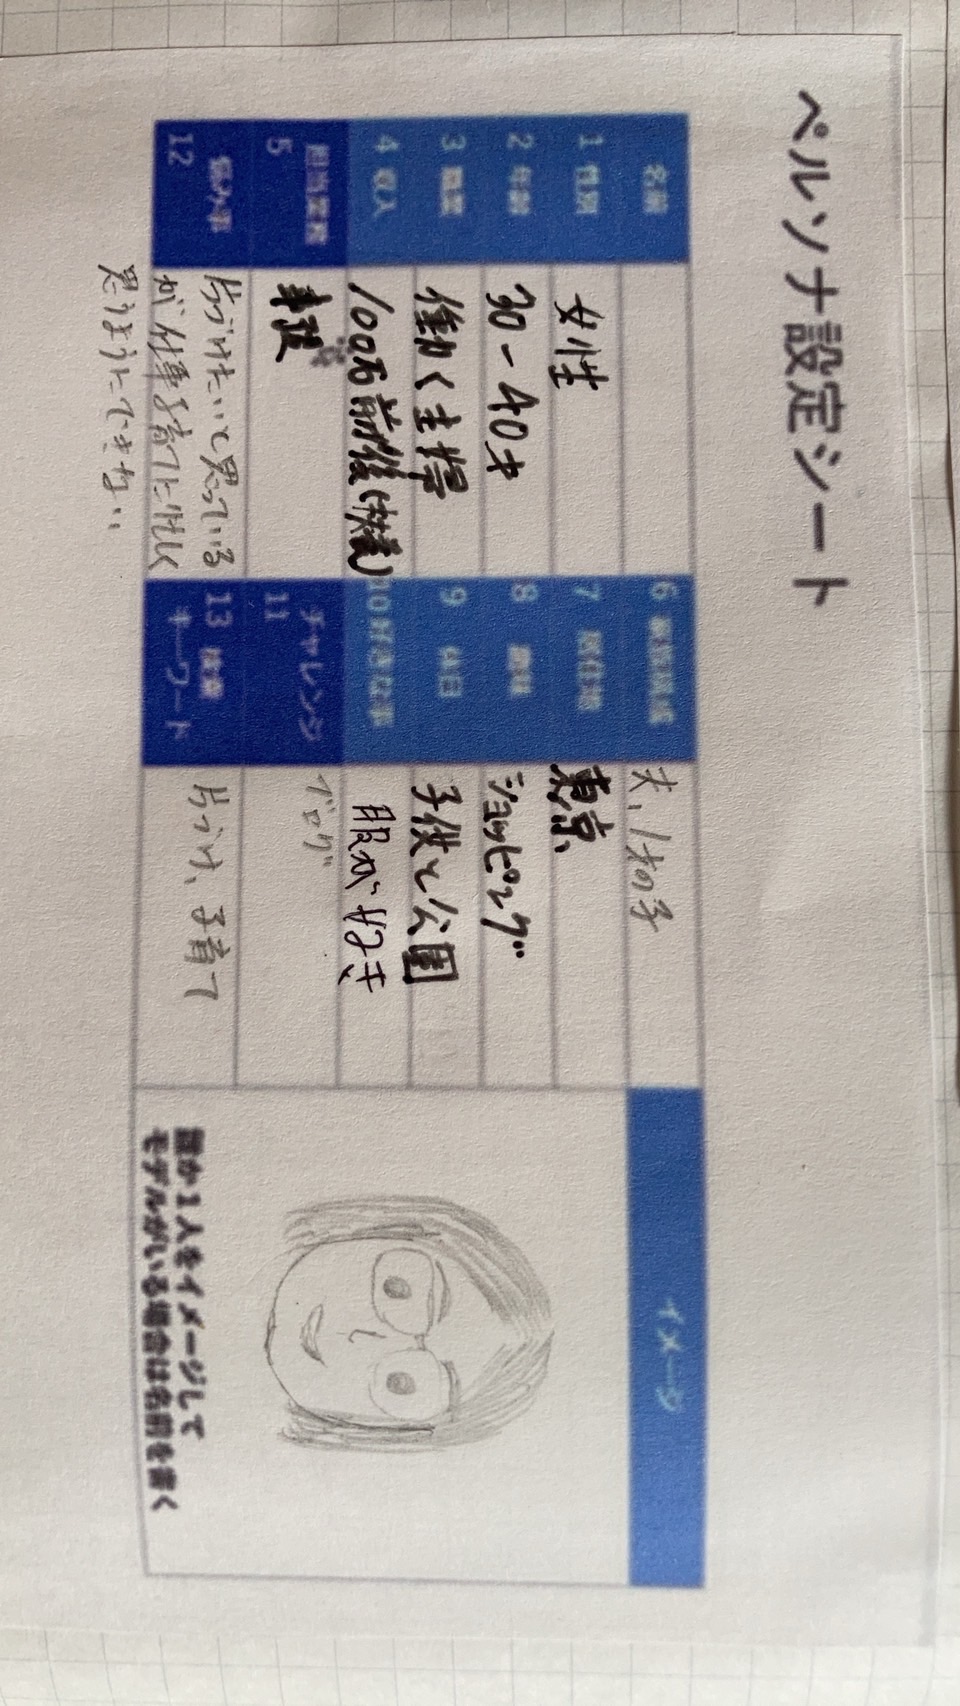 ペルソナ設定シート
名前
1 性別 女性
2 年齢 30-40才
3 職業 働く主婦
4 収入 100万前後(扶養)
担当業務
5 事務
悩み事
12
片づけたいと思っている
が仕事子育てに忙しく
思うようにできない
6 家族構成 夫、1才の子
7 居住地 東京
8 趣味 ショッピング
9 休日 子供と公園
10 好きな事 服が好き
チャレンジ
11 ブログ
13 検索
キーワード 片づけ、子育て
イメージ
誰か1人をイメージして
モデルがいる場合は名前を書く